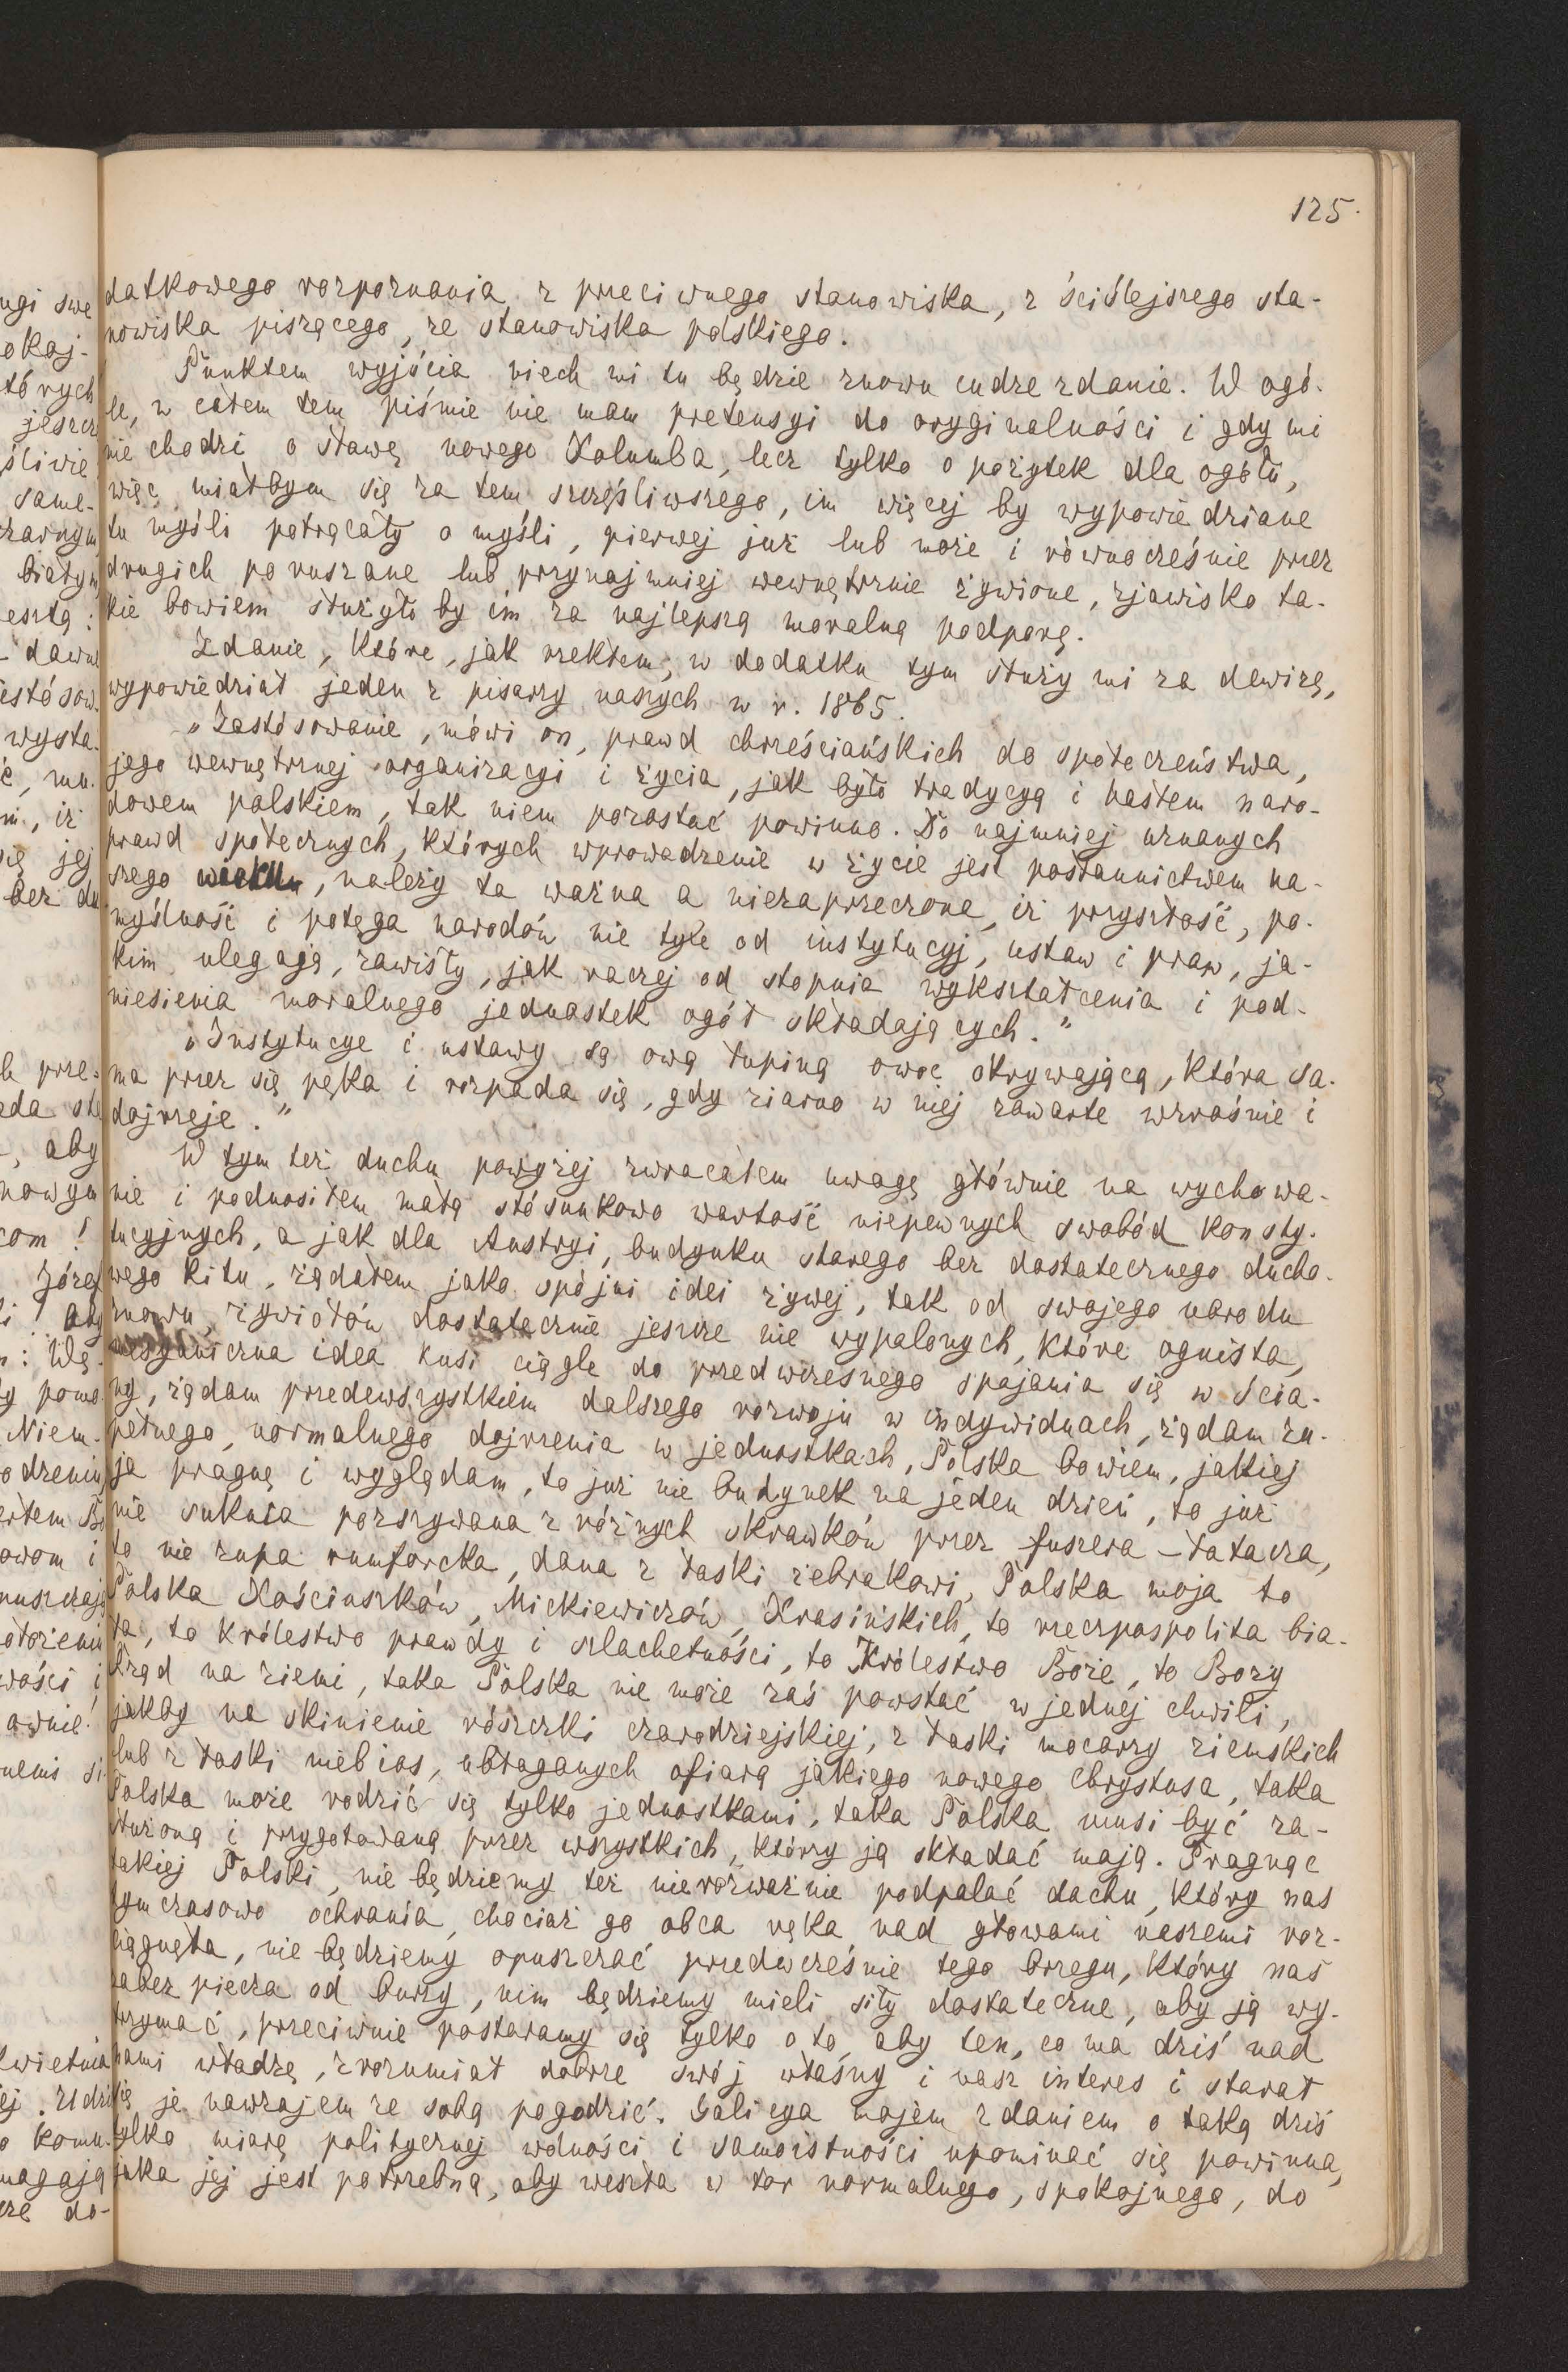 125.
datkowego rozpoznania z przeciwnego stanowiska, z ściślejszego sta-
nowiska piszącego, ze stanowiska polskiego.
Punktem wyjścia niech mi tu będzie znowu cudze zdanie. W ogó-
le, w całem tem piśmie nie mam pretensyi do oryginalności i gdy mi
nie chodzi o sławę nowego Kolumba, lecz tylko o pożytek dla ogółu,
więc miałbym się za tem szczęśliwszego, im więcej by wypowiedziane
tu myśli potrącały o myśli, pierwej już lub może i równocześnie przez
drugich poruszane lub przynajmniej wewnętrznie żywione, zjawisko ta-
kie bowiem służyło by im za najlepszą moralną podporę.
Zdanie, które, jak rzekłem, w dodatku tym służy mi za dewizę,
wypowiedział jeden z pisarzy naszych w r. 1865.
„Zastósowanie, mówi on, prawd chrześciańskich do społeczeństwa,
jego wewnętrznej organizacyi i życia, jak było tradycyą i hasłem naro-
dowem polskiem, tak niem pozostać powinno. Do najmniej uznanych
prawd społecznych, których wprowadzenie w życie jest posłannictwem na-
szego wieku, należy ta ważna a niezaprzeczona, iż przyszłość, po-
myślność i potęga narodów nie tyle od instytucyj, ustaw i praw, ja-
kim ulegają, zawisły, jak raczej od stopnia wykształcenia i pod-
niesienia moralnego jednostek ogół składających."
„Instytucye i ustawy są ową łupiną owoc okrywającą, która sa-
ma przez się pęka i rozpada się, gdy ziarno w niej zawarte wzrośnie i
dojrzeje."
W tym też duchu powyżej zwracałem uwagę głównie na wychowa-
nie i podnosiłem małą stósunkowo wartość niepewnych swobód konsty-
tucyjnych, a jak dla Austryi, budynku starego bez dostatecznego ducho-
wego kitu, żądałem jako spójni idei żywej, tak od swojego narodu
znowu, żywiołów dostatecznie jeszcze nie wypalonych, które ognista,
organiczna idea kusi ciągle do przedwczesnego spajania się w ścia-
ny, żądam przedewszystkiem dalszego rozwoju w indywiduach, żądam zu-
pełnego, normalnego dojrzenia w jednostkach, Polska bowiem, jakiej
ja pragnę i wyglądam, to już nie budynek na jeden dzień, to już
nie suknia pozszywana z różnych skrawków przez fuszera - łatacza,
to nie zupa rumforcka, dana z łaski żebrakowi, Polska moja to
Polska Kościuszków, Mickiewiczów, Krasińskich, to rzeczpospolita bia-
ła, to królestwo prawdy i szlachetności, to Królestwo Boże, to Boży
Rząd na ziemi, taka Polska nie może zaś powstać w jednej chwili,
jakby na skinienie różczki czarodziejskiej, z łaski mocarzy ziemskich
lub z łaski niebios, ubłaganych ofiarą jakiego nowego Chrystusa, taka
Polska może rodzić się tylko jednostkami, taka Polska musi być za-
służoną i przygotowaną przez wszystkich, którzy ją składać mają. Pragnąc
takiej Polski, nie będziemy też nierozważnie podpalać dachu, który nas
tymczasowo ochrania, chociaż go obca ręka nad głowami naszemi roz-
ciągnęła, nie będziemy opuszczać przedwcześnie tego brzegu, który nas
zabezpiecza od burzy, nim będziemy mieli siły dostateczne, aby ją wy-
trzymać, przeciwnie postaramy się tylko o to, aby ten, co ma dziś nad
nami władzę, zrozumiał dobrze swój własny i nasz interes i starał
się je nawzajem ze sobą pogodzić. Galicya mojem zdaniem o taką dziś
tylko miarę politycznej wolności i samoistności upominać się powinna,
jaka jej jest potrzebną, aby weszła w tor normalnego, spokojnego, do